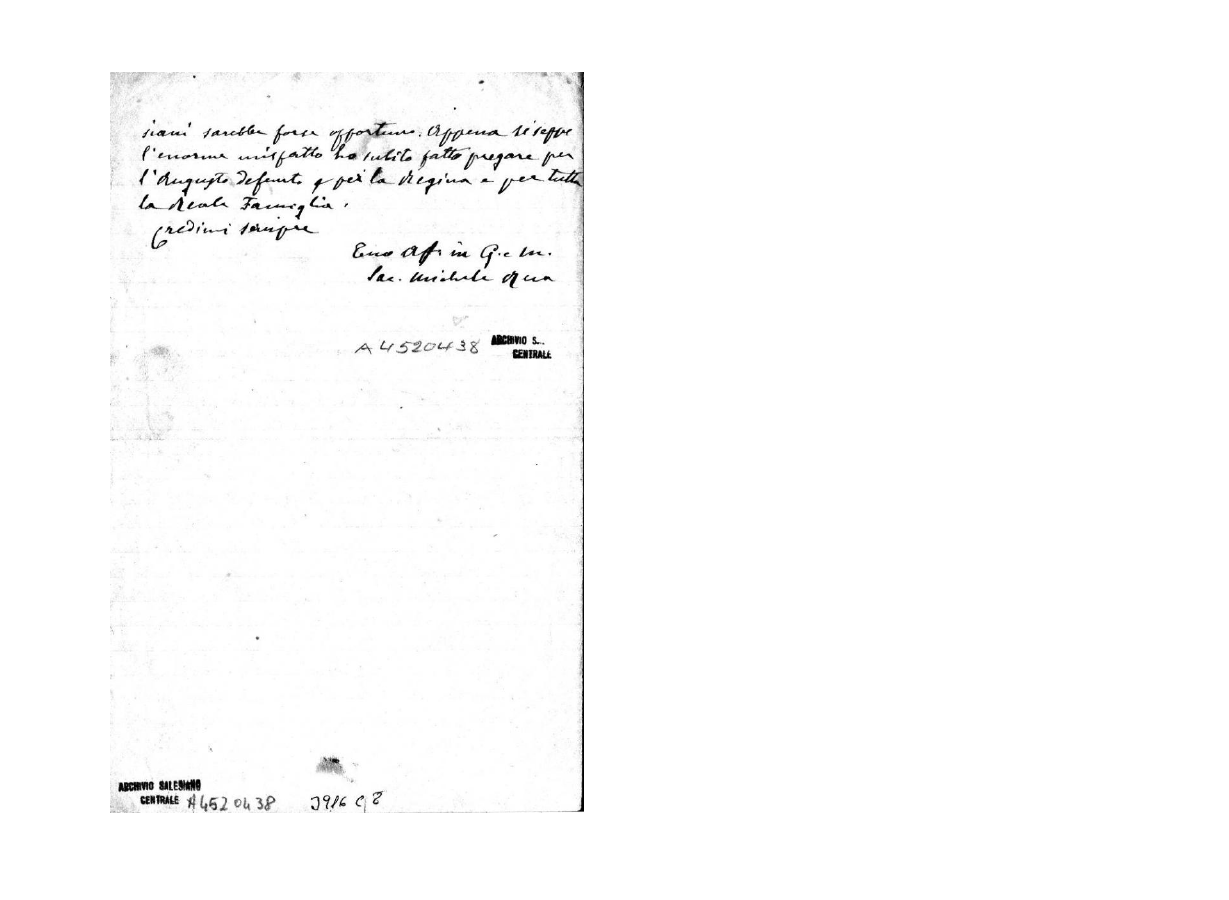 siani sarebbe forse opportuno. Appena si seppe
l'enorme misfatto ho subito fatto pregare per
l'Augusto defunto e per la Regina e per tutta
la Reale Famiglia.
Credimi sempre
Tuo Aff. in G. e M.
Sac. Michele Rua
A4520438
ARCHIVIO S...
CENTRALE
ARCHIVIO SALESIANO
CENTRALE A4520438